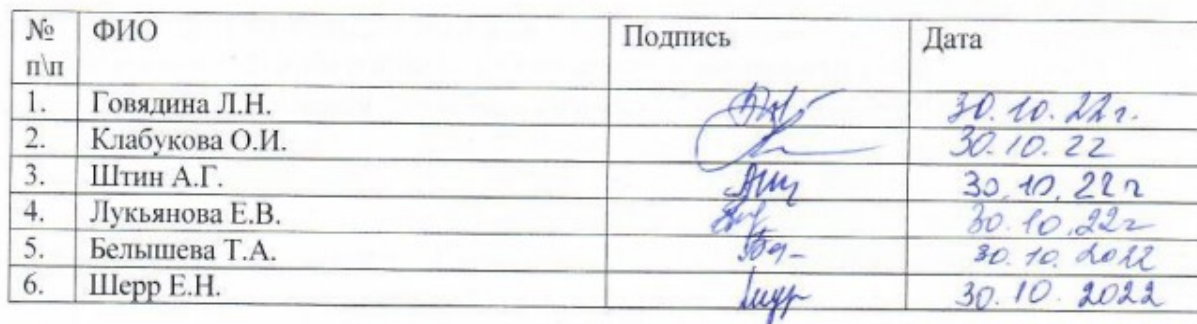 № п\п ФИО Подпись Дата
1. Говядина Л.Н. 30.10.22г.
2. Клабукова О.И. 30.10.22
3. Штин А.Г. 30.10.22г
4. Лукьянова Е.В. 30.10.22г
5. Белышева Т.А. 30.10.2022
6. Шерр Е.Н. 30.10.2022